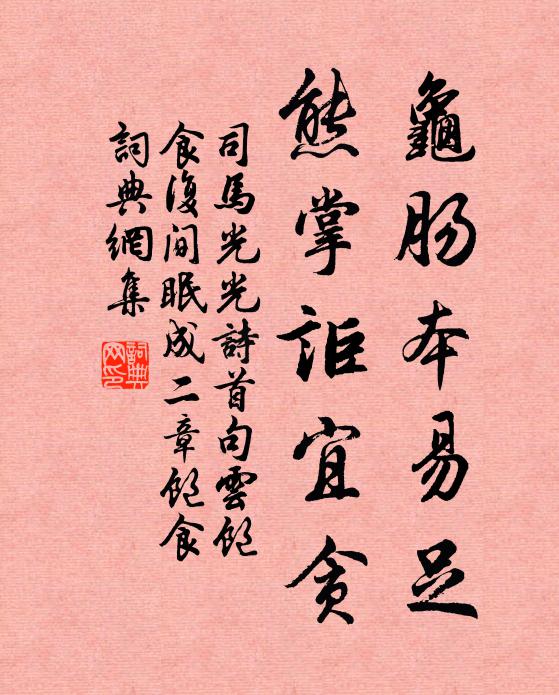 龜腸本易足
熊掌詎宜貪
司馬光光詩首句雲飽
食復閒眠成二章飽食
詞典網集
詞典
网印